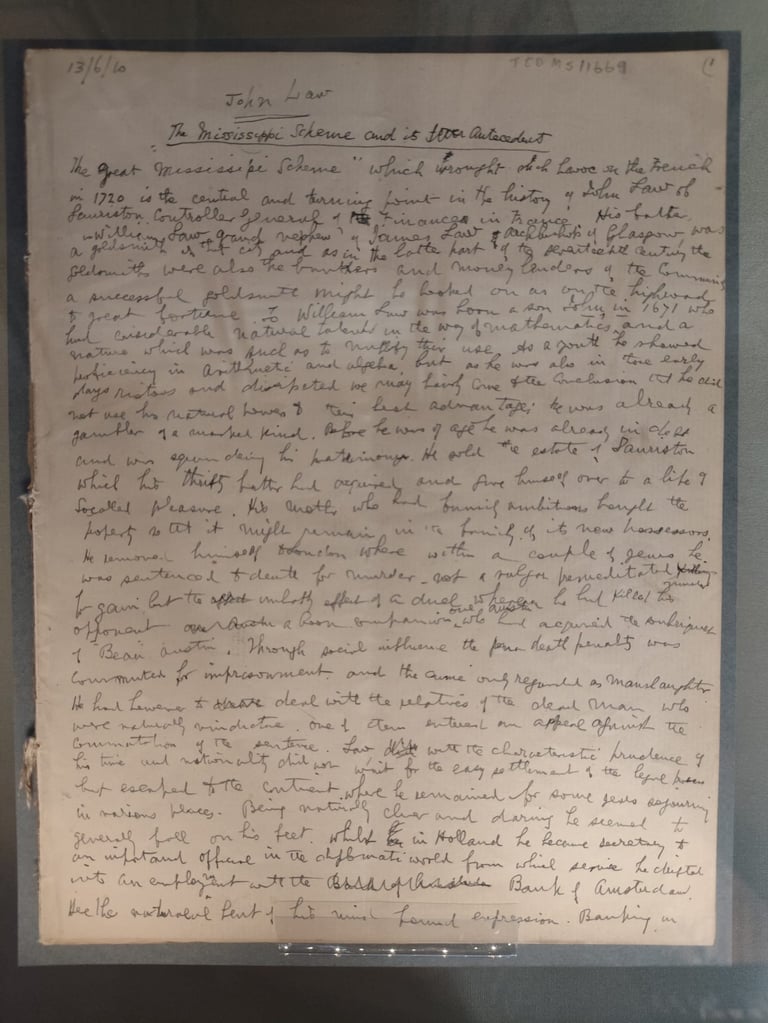 13/6/10
TED MS 11669
(1
John Law
"The Mississippi Scheme and its Antecedents
The great "Mississipi Scheme" which wrought such havoc on the French
in 1720 is the central and turning point in the history of John Law of
Lauriston Controller General of Finances in France. His father
William Law, grand nephew of James Law Archbishop of Glasgow was
a goldsmith in that city and as in the latter part of the seventeenth century the
Goldsmiths were also the bankers and money lenders of the Community
a successful goldsmith might be looked on as on the highroad
to great fortune. To William Law was born a son John, in 1671 who
had considerable natural talent in the way of mathematics, and a
nature which was such as to nullify their use. As a youth he showed
proficiency in Arithmetic and algebra, but as he was also in those early
days riotous and dissipated we may fairly come to the conclusion that he did
not use his natural powers to their best advantage; he was already a
gambler of a marked kind. Before he was of age he was already in debt
and was squandering his patrimony. He sold the estate of Lauriston
which his thrifty father had acquired and gave himself over to a life of
so called pleasure. His mother who had family ambitions bought the
property so that it might remain in the family of its new possessors.
He removed himself to London where within a couple of years he
was sentenced to death for murder - not a vulgar premeditated murder
for gain but the unlucky effect of a duel wherein he had killed his
opponent a boon companion, one who had acquired the sobriquet
of "Beau Austin". Through social influence the death penalty was
commuted for imprisonment and the crime only regarded as manslaughter
He had however to deal with the relatives of the dead man who
were naturally vindictive. one of them entered an appeal against the
commutation of the sentence. Law with the characteristic prudence of
his time and nationality did not wait for the easy settlement of the legal process
but escaped to the continent where he remained for some years sojourning
in various places. Being naturally clever and daring he seemed to
generally fall on his feet. Whilst in Holland he became secretary to
an important official in the diplomatic world from which service he drifted
into an employment with the Bank of Amsterdam.
Here the natural bent of his mind found expression. Banking in